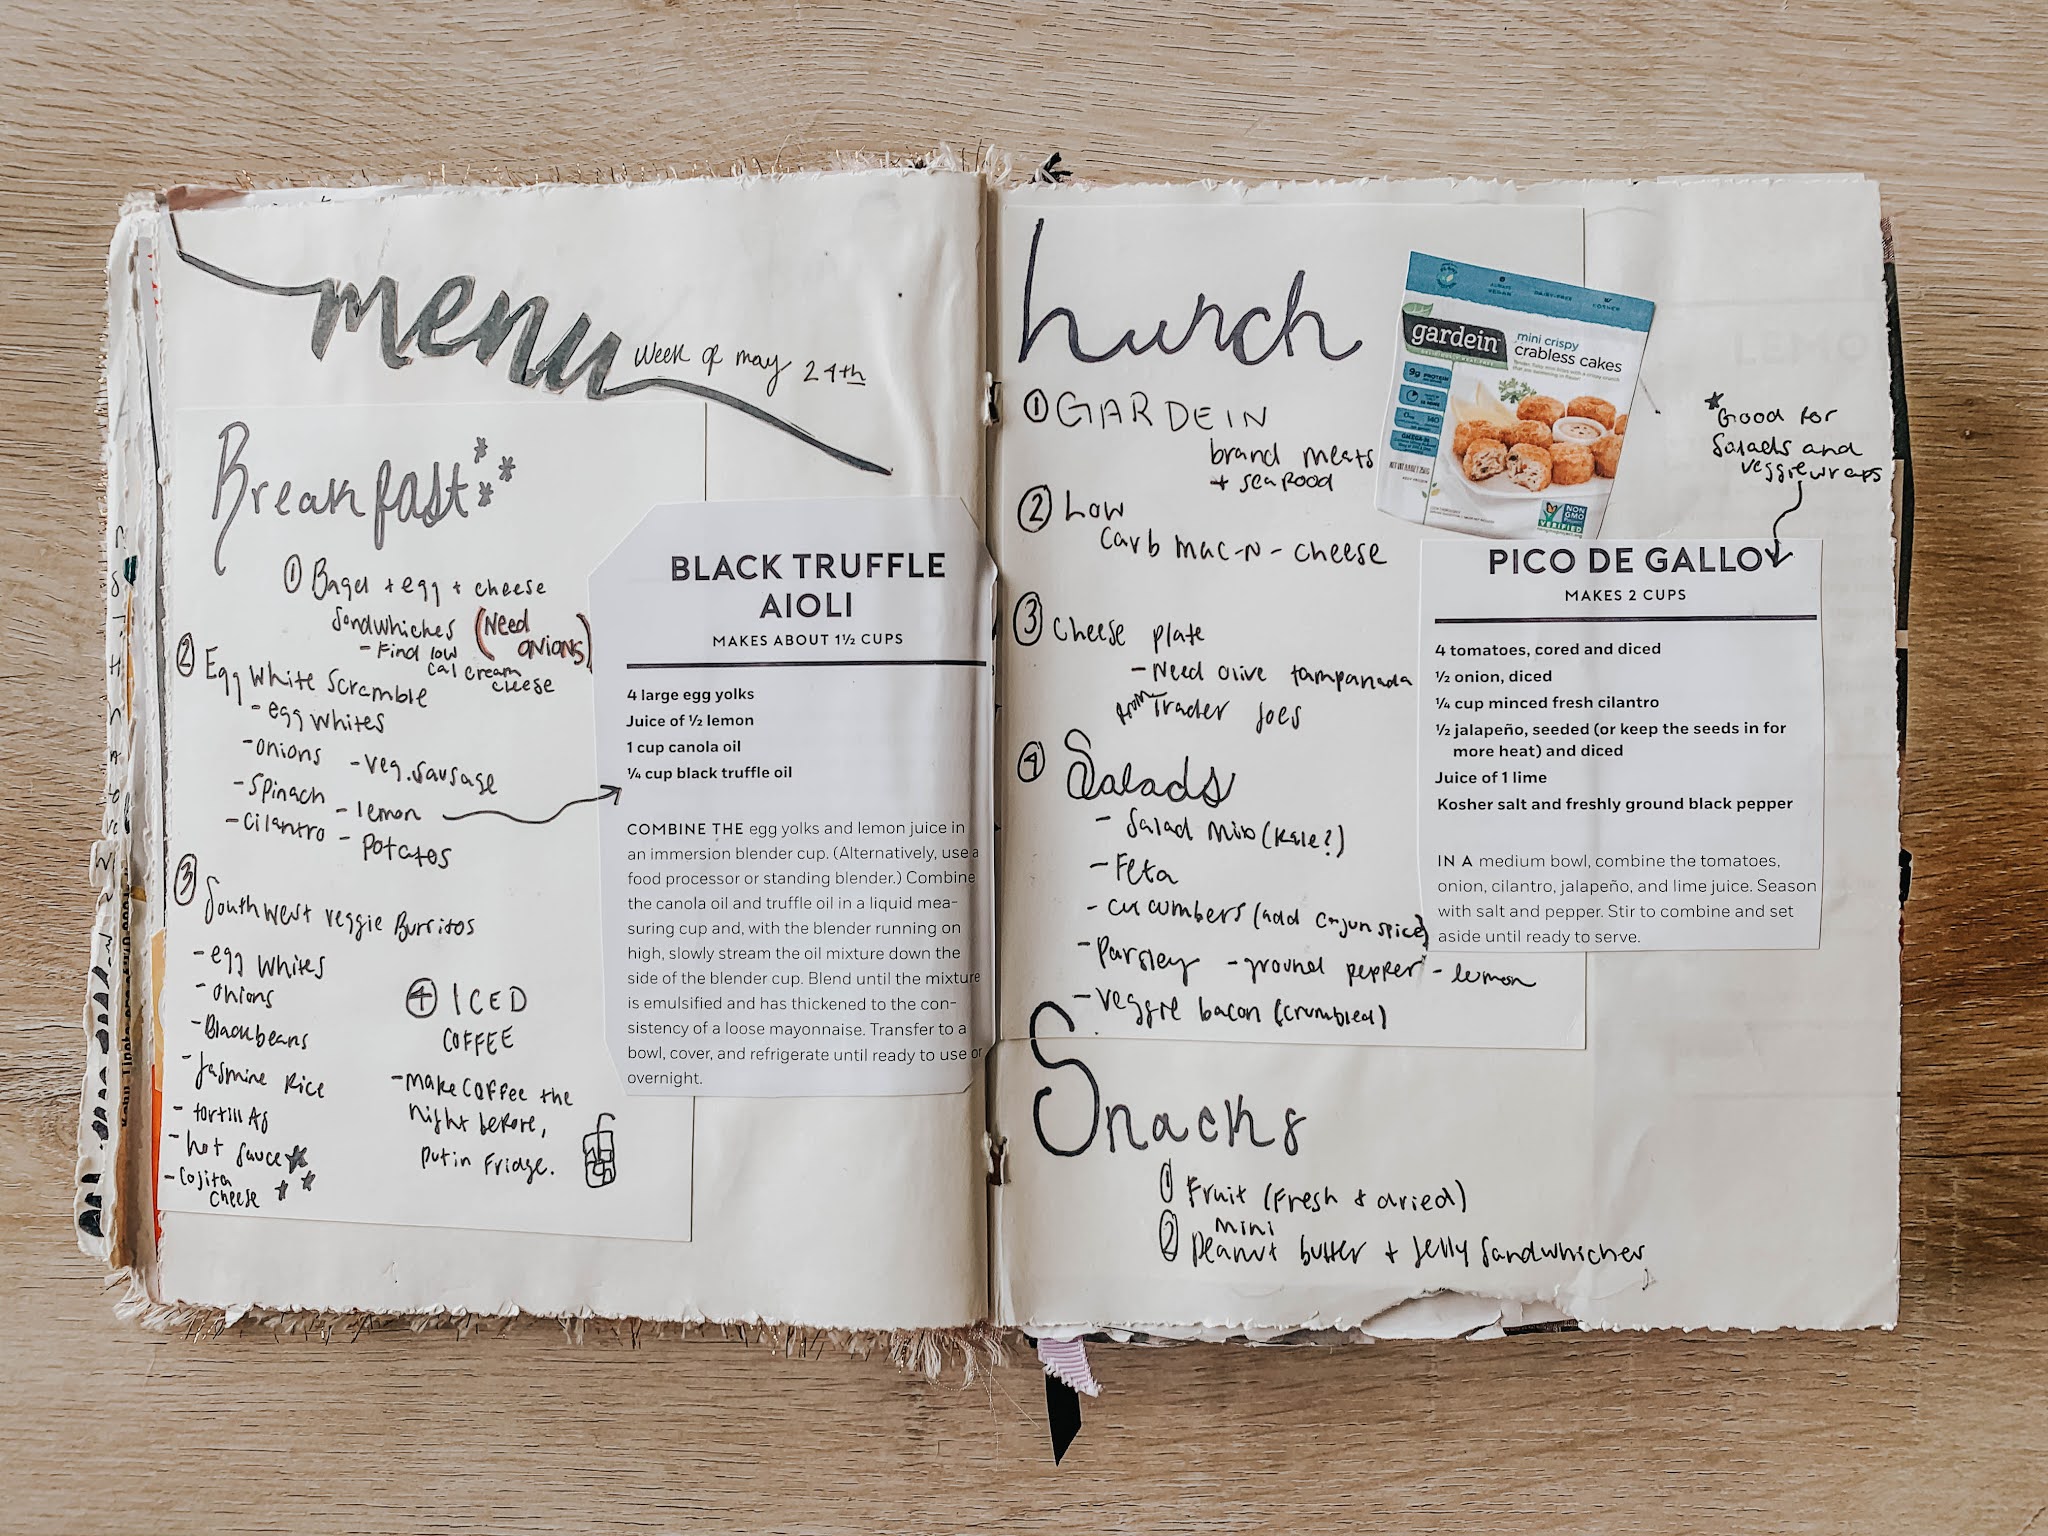 menu
Week of may 24th
Breakfast
① Bagel + egg + cheese
Sandwhiches (Need
ONIONS)
- Find low
cal cream
cheese
② Egg White Scramble
- egg whites
- onions - veg. sausage
- spinach - lemon
- cilantro - potatos
③ Southwest veggie Burritos
- egg whites
- onions
- Blackbeans
- Jasmine Rice
- tortillas
- hot sauce
- Cojita
cheese
④ ICED
COFFEE
- make coffee the
night before,
put in fridge.
BLACK TRUFFLE
AIOLI
MAKES ABOUT 1½ CUPS
4 large egg yolks
Juice of ½ lemon
1 cup canola oil
¼ cup black truffle oil
COMBINE THE egg yolks and lemon juice in
an immersion blender cup. (Alternatively, use a
food processor or standing blender.) Combine
the canola oil and truffle oil in a liquid mea-
suring cup and, with the blender running on
high, slowly stream the oil mixture down the
side of the blender cup. Blend until the mixture
is emulsified and has thickened to the con-
sistency of a loose mayonnaise. Transfer to a
bowl, cover, and refrigerate until ready to use or
overnight.
Lunch
① GARDEIN
brand meats
+ seafood
② Low
Carb mac-N-cheese
③ Cheese plate
- Need olive tampanada
from Trader Joes
④ Salads
- Salad mix (kale?)
- Feta
- cucumbers (add cajun spice)
- Parsley - ground pepper - lemon
- veggie bacon (crumbled)
ALWAYS
VEGAN
DAIRY-FREE
KOSHER
gardein
mini crispy
crabless cakes
9g PROTEIN
OMEGA-3S
NON
GMO
VERIFIED
*Good for
Salads and
veggiewraps
PICO DE GALLO
MAKES 2 CUPS
4 tomatoes, cored and diced
½ onion, diced
¼ cup minced fresh cilantro
½ jalapeño, seeded (or keep the seeds in for
more heat) and diced
Juice of 1 lime
Kosher salt and freshly ground black pepper
IN A medium bowl, combine the tomatoes,
onion, cilantro, jalapeño, and lime juice. Season
with salt and pepper. Stir to combine and set
aside until ready to serve.
Snacks
① Fruit (Fresh & dried)
② mini
Peanut butter + Jelly Sandwhiches